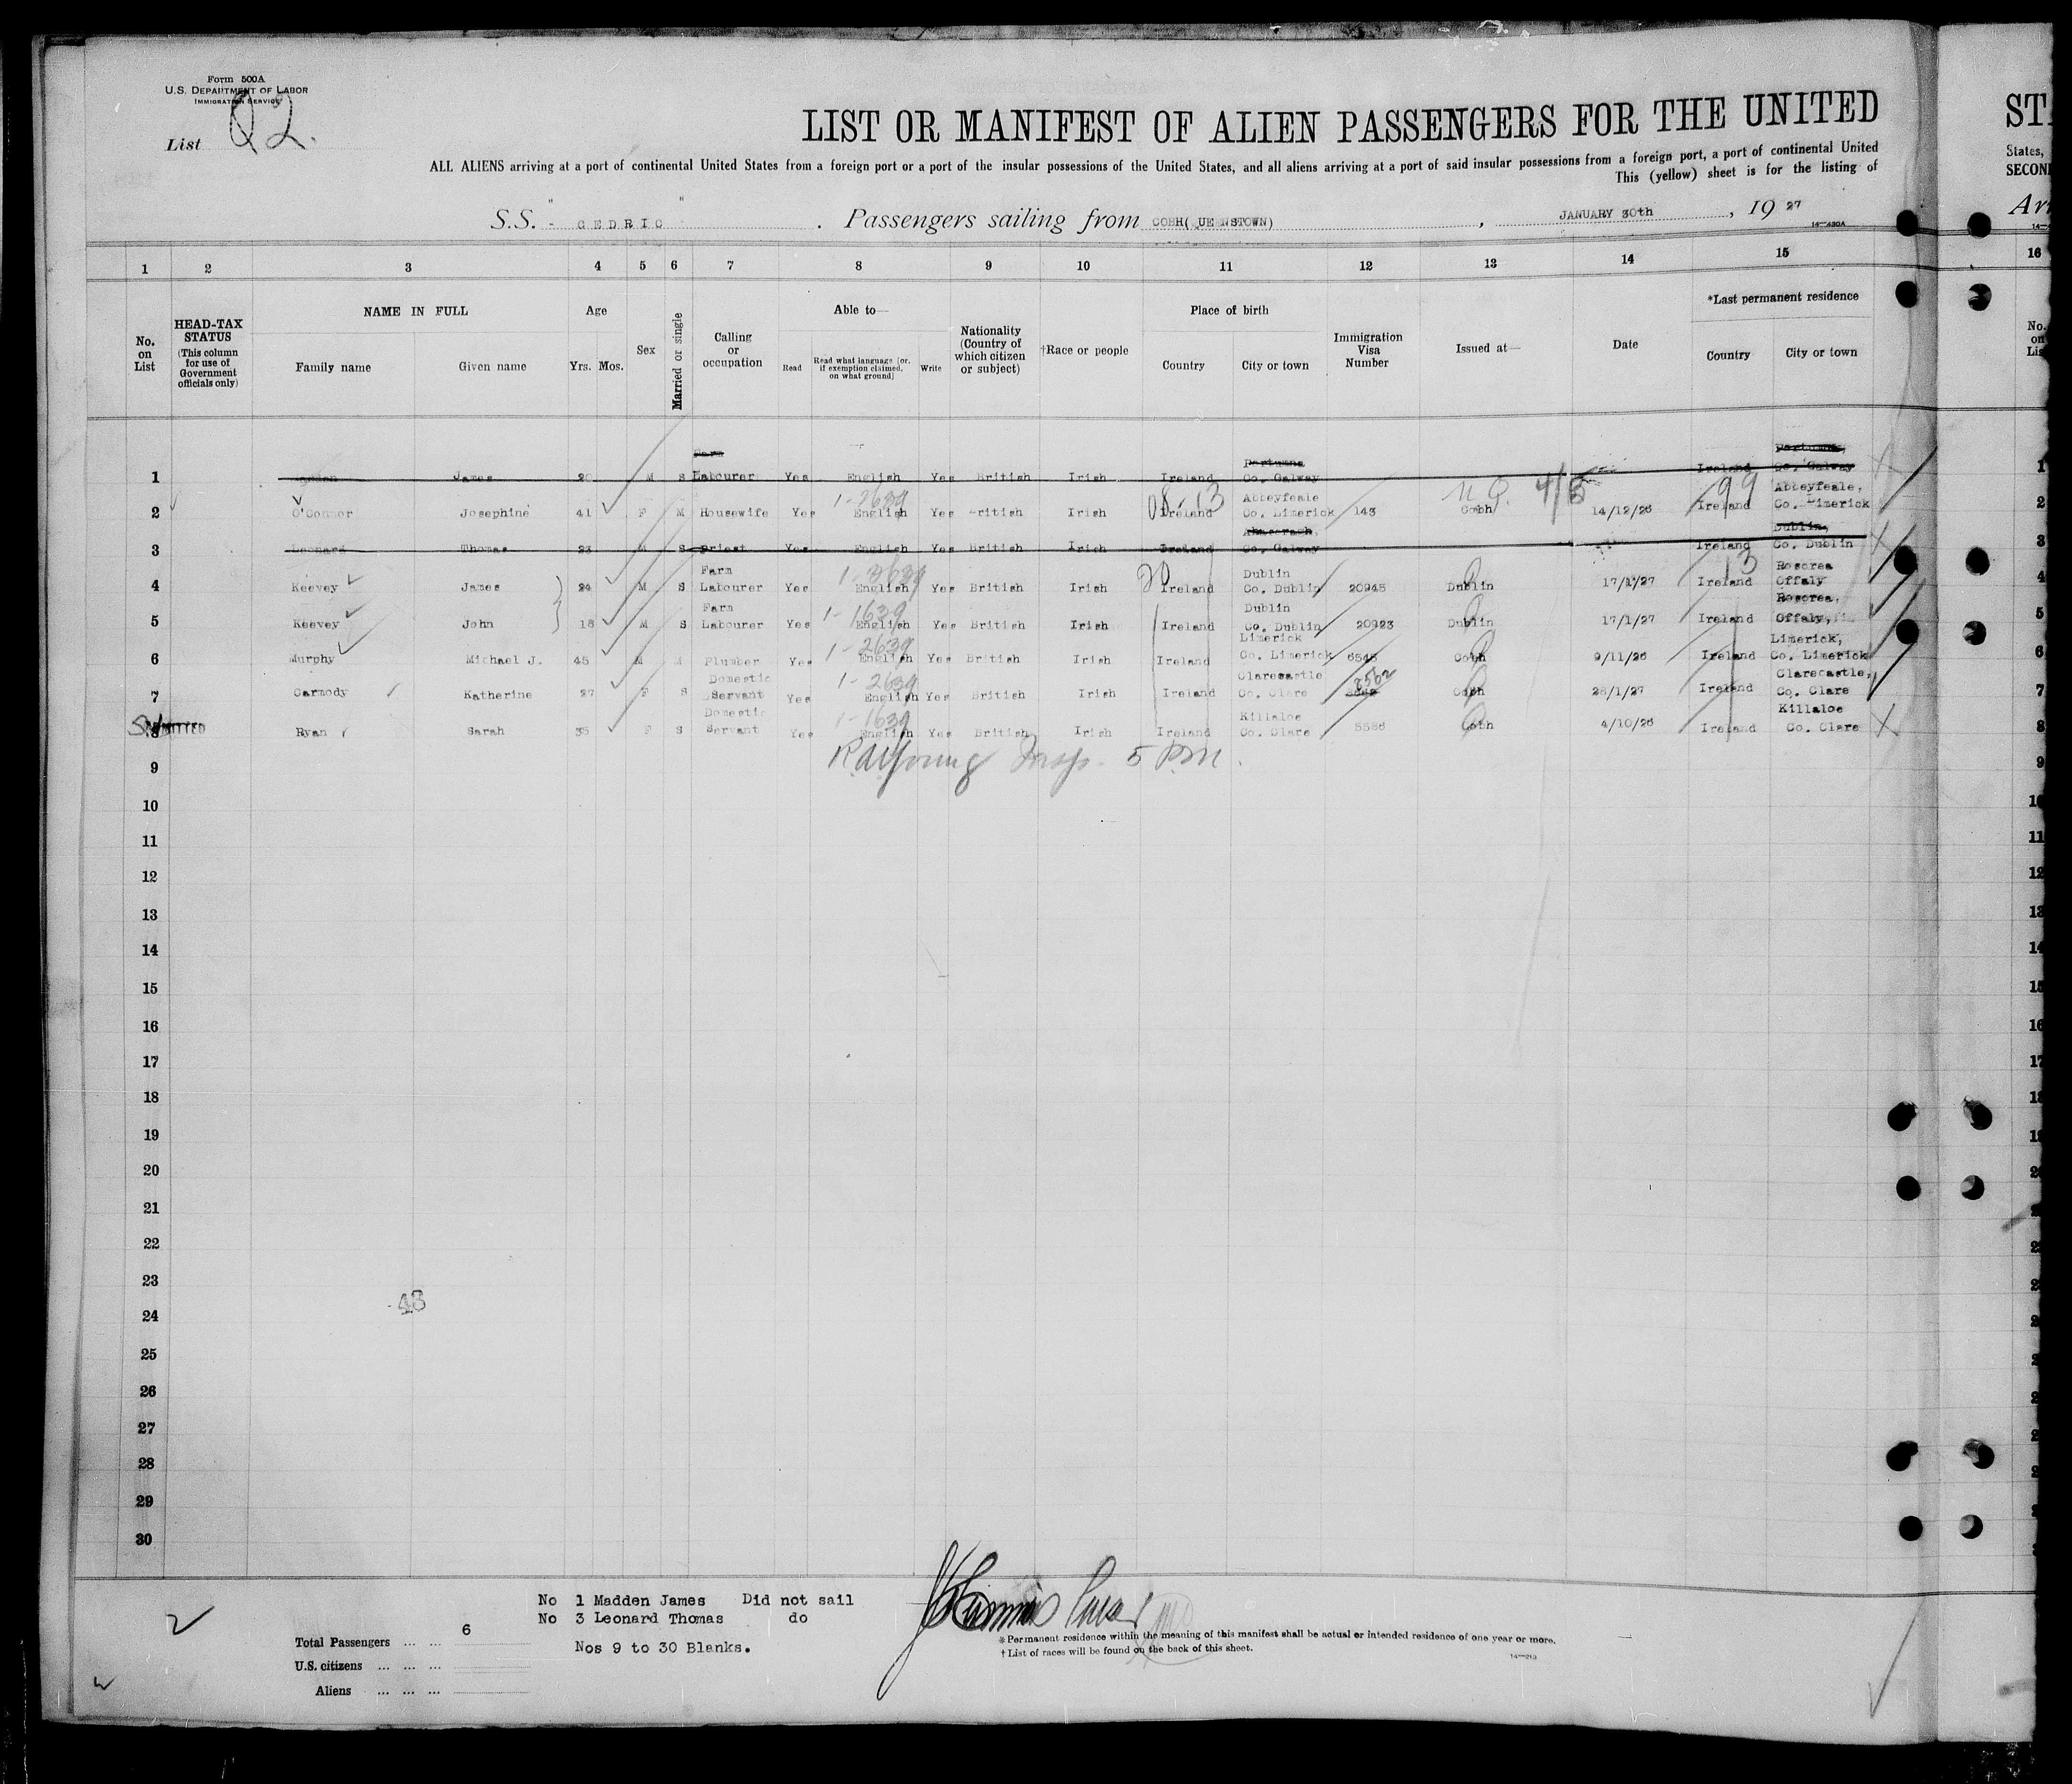 Form 500A
U.S. DEPARTMENT OF LABOR
IMMIGRATION SERVICE
List Q2.
LIST OR MANIFEST OF ALIEN PASSENGERS FOR THE UNITED
ALL ALIENS arriving at a port of continental United States from a foreign port or a port of the insular possessions of the United States, and all aliens arriving at a port of said insular possessions from a foreign port, a port of continental United
This (yellow) sheet is for the listing of
S.S. " CEDRIC " . Passengers sailing from COBH( UEENSTOWN) , JANUARY 30th , 19 27
14—430A
1 2 3 4 5 6 7 8 9 10 11 12 13 14 15 16
No. on List
HEAD-TAX STATUS (This column for use of Government officials only)
NAME IN FULL
Family name Given name
Age
Yrs. Mos.
Sex
Married or single
Calling or occupation
Able to—
Read
Read what language [or, if exemption claimed, on what ground]
Write
Nationality (Country of which citizen or subject)
†Race or people
Place of birth
Country City or town
Immigration Visa Number
Issued at—
Date
*Last permanent residence
Country City or town
1 James 20 M S Farm Labourer Yes English Yes British Irish Ireland Portumna Co. Galway Ireland Portumna, Co. Galway
2 O'Connor Josephine 41 F M Housewife Yes 1-2639 English Yes British Irish Ireland Abbeyfeale Co. Limerick 143 Cobh 14/12/26 Ireland 99 Abbeyfeale, Co. Limerick
3 Leonard Thomas 23 M S Priest Yes English Yes British Irish Ireland Ahascragh, Co. Galway Ireland Dublin, Co. Dublin
4 Keevey James 24 M S Farm Labourer Yes 1-3639 English Yes British Irish Ireland Dublin Co. Dublin 20945 Dublin 17/1/27 Ireland 13 Roscrea Offaly
5 Keevey John 18 M S Farm Labourer Yes 1-1639 English Yes British Irish Ireland Dublin Co. Dublin 20923 Dublin 17/1/27 Ireland Roscrea, Offaly,
6 Murphy Michael J. 45 M M Plumber Yes 1-2639 English Yes British Irish Ireland Limerick Co. Limerick 6545 Cobh 9/11/26 Ireland Limerick, Co. Limerick
7 Carmody Katherine 27 F S Domestic Servant Yes 1-2639 English Yes British Irish Ireland Clarecastle Co. Clare 8562 Cobh 28/1/27 Ireland Clarecastle, Co. Clare
8 Ryan Sarah 35 F S Domestic Servant Yes 1-1639 English Yes British Irish Ireland Killaloe Co. Clare 5586 Cobh 4/10/26 Ireland Killaloe Co. Clare
Insp. 5 PM.
9
10
11
12
13
14
15
16
17
18
19
20
21
22
23
48
24
25
26
27
28
29
30
No 1 Madden James Did not sail
No 3 Leonard Thomas do
Nos 9 to 30 Blanks.
Total Passengers ... ... 6
U.S. citizens ... ... ...
Aliens ... ... ...
* Permanent residence within the meaning of this manifest shall be actual or intended residence of one year or more.
† List of races will be found on the back of this sheet.
14—213
STA
States,
SECON